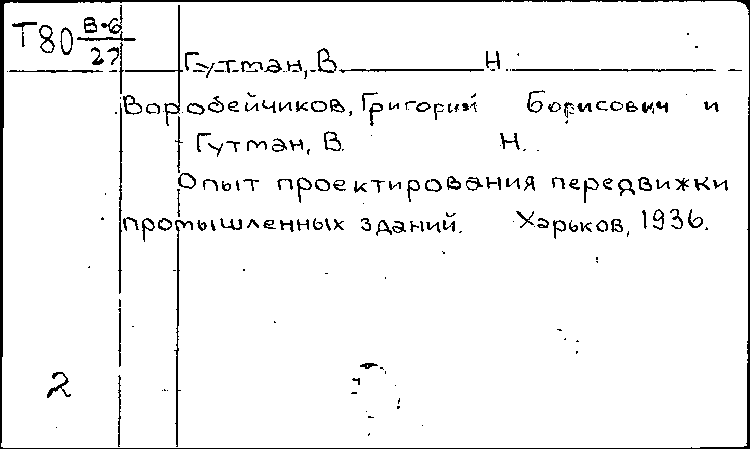 Т80 В-6
27
Гутман, В. Н.
Воробейчиков, Григорий Борисович и
Гутман, В. Н.
Опыт проектирования передвижки
промышленных зданий. Харьков, 1936.
2